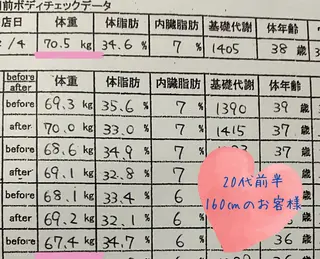 前ボディチェックデータ
店日 体重 体脂肪 内臓脂肪 基礎代謝 体年齢
/4 70.5 kg 34.6 % 7 % 1405 38 歳
before after 体重 体脂肪 内臓脂肪 基礎代謝 体年齢
before 69.3 kg 35.6 % 7 % 1390 39 歳
after 70.0 kg 33.0 % 7 % 1415 37 歳
before 68.6 kg 34.9 % 7 37 歳
after 69.1 kg 32.8 % 7
before 68.1 kg 33.4 % 6
after 69.2 kg 32.1 % 6
before 67.4 kg 34.7 % 6 36 歳
20代前半
160cmのお客様